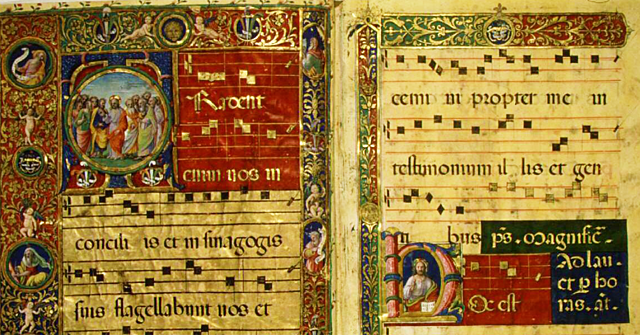 TRadent
enim uos in
concili is et in sinagogis
suis flagellabunt uos et
cemi ni propter me in
testimonium il lis et gen
ti bus ps. Magnific̄.
HOc est
Ad lau.
et ꝑ ho
ras. añ.